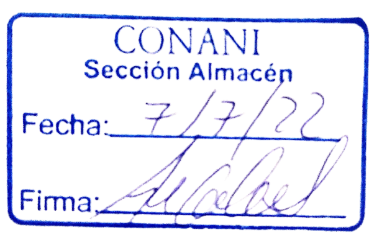 CONANI
Sección Almacén
Fecha: 7/7/22
Firma: